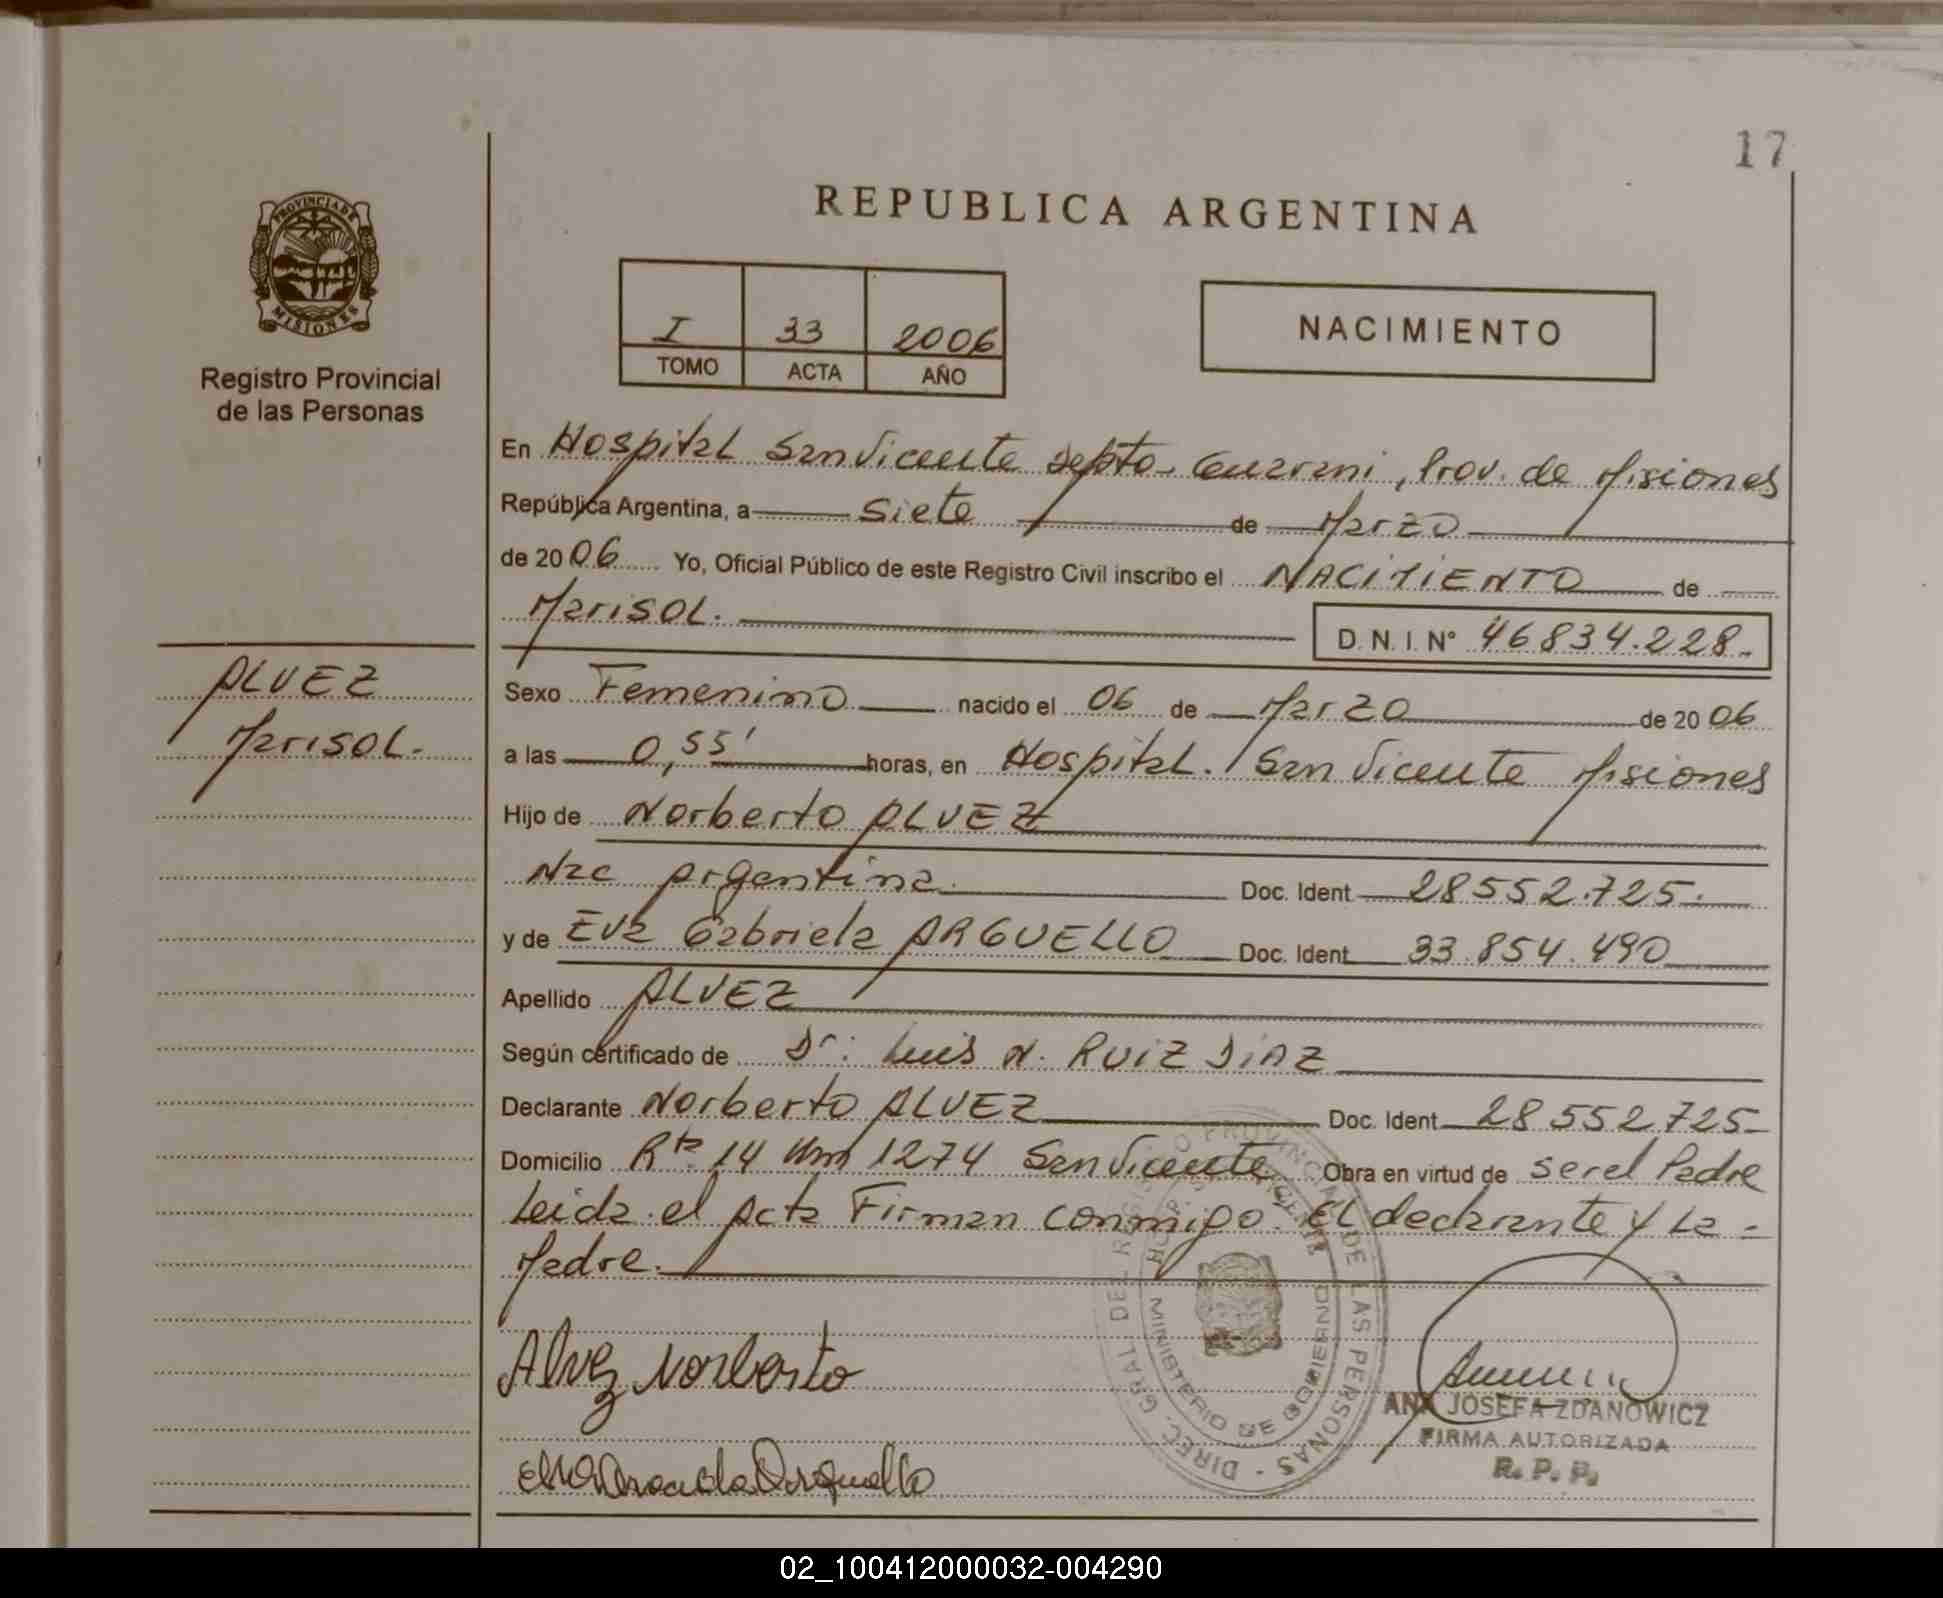 17
REPUBLICA ARGENTINA
PROVINCIA DE
MISIONES
Registro Provincial
de las Personas
I 33 2006
TOMO ACTA AÑO
NACIMIENTO
En Hospital San Vicente Depto. Guarani, Prov. de Misiones
República Argentina, a siete de Marzo
de 2006 Yo, Oficial Público de este Registro Civil inscribo el NACIMIENTO de
Marisol. D.N.I. Nº 46834.228.
ALVEZ
Marisol.
Sexo Femenino nacido el 06 de Marzo de 2006
a las 0,55' horas, en Hospital. San Vicente Misiones
Hijo de Norberto ALVEZ
Nac Argentina. Doc. Ident 28552.725.
y de Eva Gabriela ARGUELLO Doc. Ident 33.854.490
Apellido ALVEZ
Según certificado de Dr: Luis N. RUIZ DIAZ
Declarante Norberto ALVEZ Doc. Ident 28552725
Domicilio Rta 14 Km 1274 San Vicente Obra en virtud de ser el Padre
Leida el Acta Firman conmigo. El declarante y La -
Madre.
Alvez Norberto
Arguello
DIREC. GRAL DEL REGISTRO PROVINCIAL DE LAS PERSONAS -
HOSP. S. VICENTE
MINISTERIO DE GOBIERNO
ANA JOSEFA ZDANOWICZ
FIRMA AUTORIZADA
R. P. P.
02_100412000032-004290